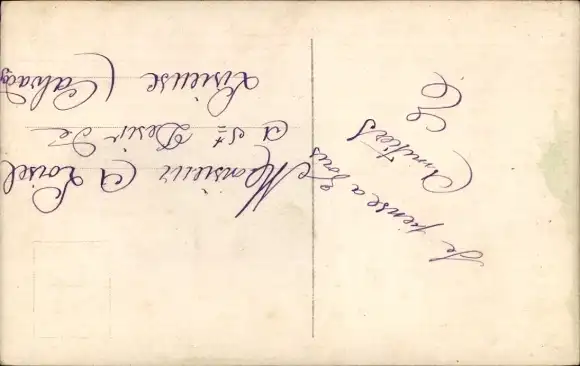 Je pense a vous
Amitiés
E
Monsieur A Loisel
a St Desir De
Lisieuse (Calvados